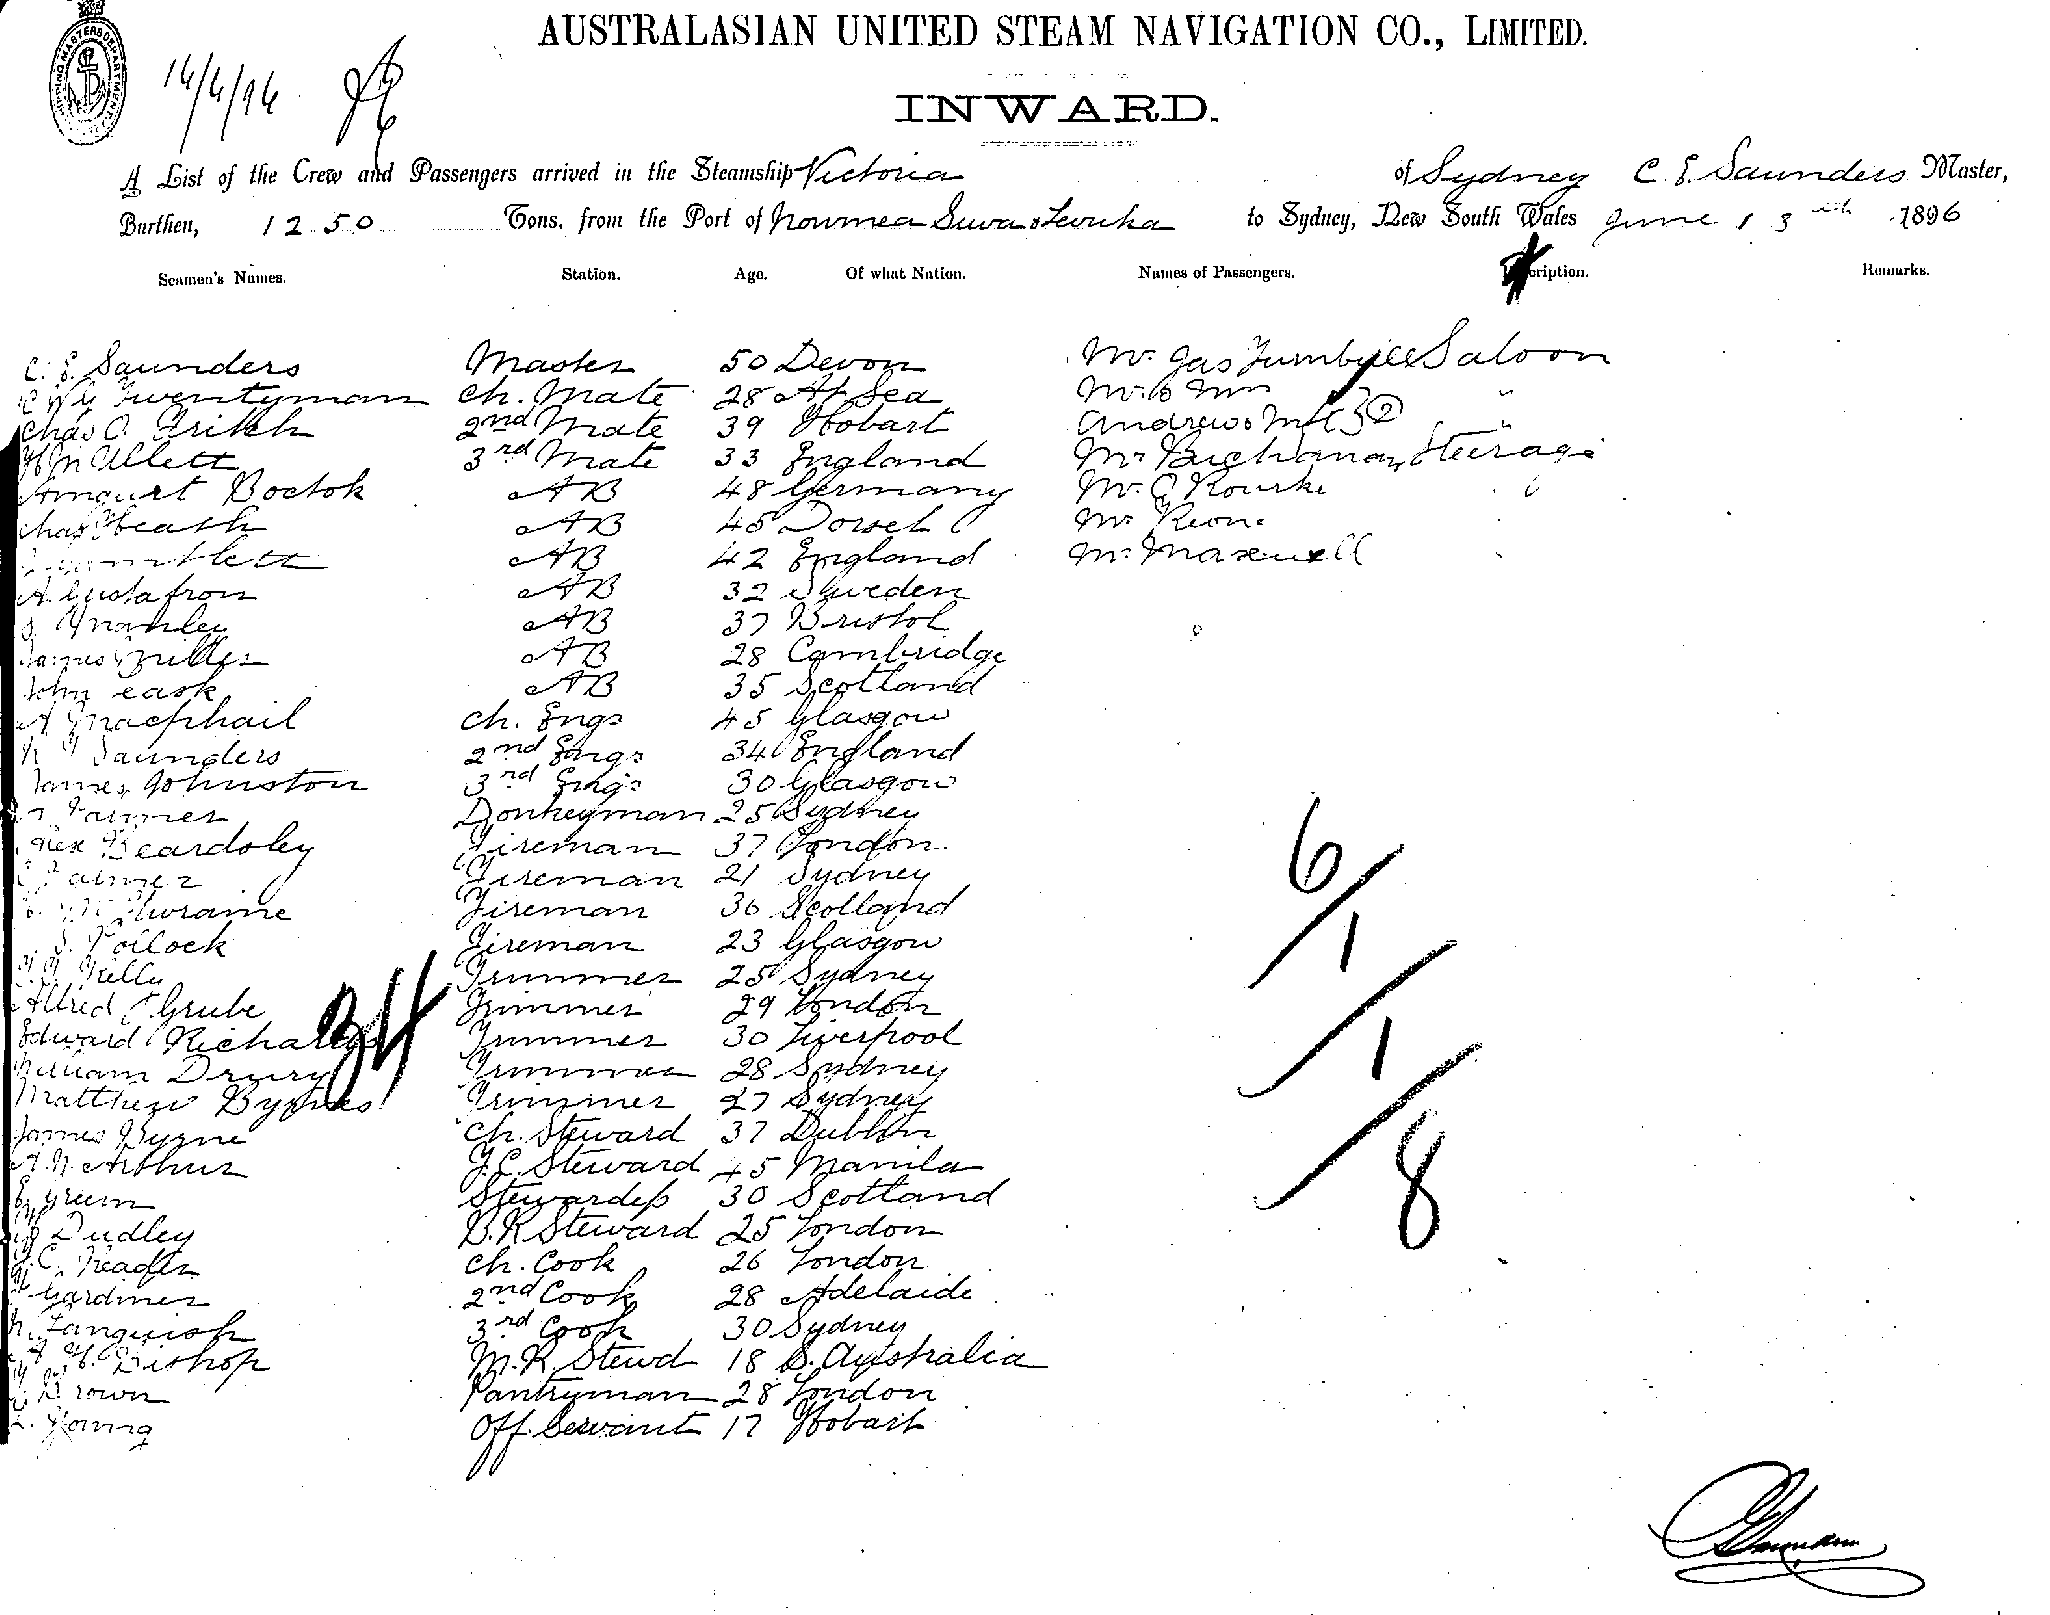 AUSTRALASIAN UNITED STEAM NAVIGATION CO., LIMITED.
14/6/96
INWARD.
A List of the Crew and Passengers arrived in the Steamship Victoria of Sydney C. E. Saunders Master,
Burthen, 1250 Tons, from the Port of Noumea Suva & Levuka to Sydney, New South Wales June 13th 1896
Seamen's Names. Station. Age. Of what Nation. Names of Passengers. Description. Remarks.
C. E. Saunders Master 50 Devon Mr Jas Turnbull Saloon
Twentyman Ch. Mate 28 At Sea Mr & Mrs "
Chas 2nd Mate 39 Hobart Andrews "
Ullett 3rd Mate 33 England Mr Buchanan Steerage
Bostok AB 48 Germany Mr O Rourke "
Chas Heath AB 45 Dorset Mr
AB 42 England Mr Maxwell
A. Gustafson AB 32 Sweden
AB 37 Bristol
James AB 28 Cambridge
John AB 35 Scotland
A Macphail Ch. Engr 45 Glasgow
Saunders 2nd Engr 34 England
James Johnston 3rd Engr 30 Glasgow
Donkeyman 25 Sydney
Alex Beardsley Fireman 37 London
Palmer Fireman 21 Sydney
Fireman 36 Scotland
S. Pollock Fireman 23 Glasgow
Kelly Trimmer 25 Sydney
Alfred Grube Trimmer 29 London
Edward Richards Trimmer 30 Liverpool
William Drury Trimmer 28 Sydney
Matthew Byrnes Trimmer 27 Sydney
34
James Byrne Ch. Steward 37 Dublin
A. McArthur F.C. Steward 45 Manila
E. Green Stewardess 30 Scotland
Dudley B.R Steward 25 London
C. Ch. Cook 26 London
Gardiner 2nd Cook 28 Adelaide
3rd Cook 30 Sydney
H. Bishop M.R. Stewd 18 S. Australia
Brown Pantryman 28 London
Young Off. Servant 17 Hobart
6/1/1/8